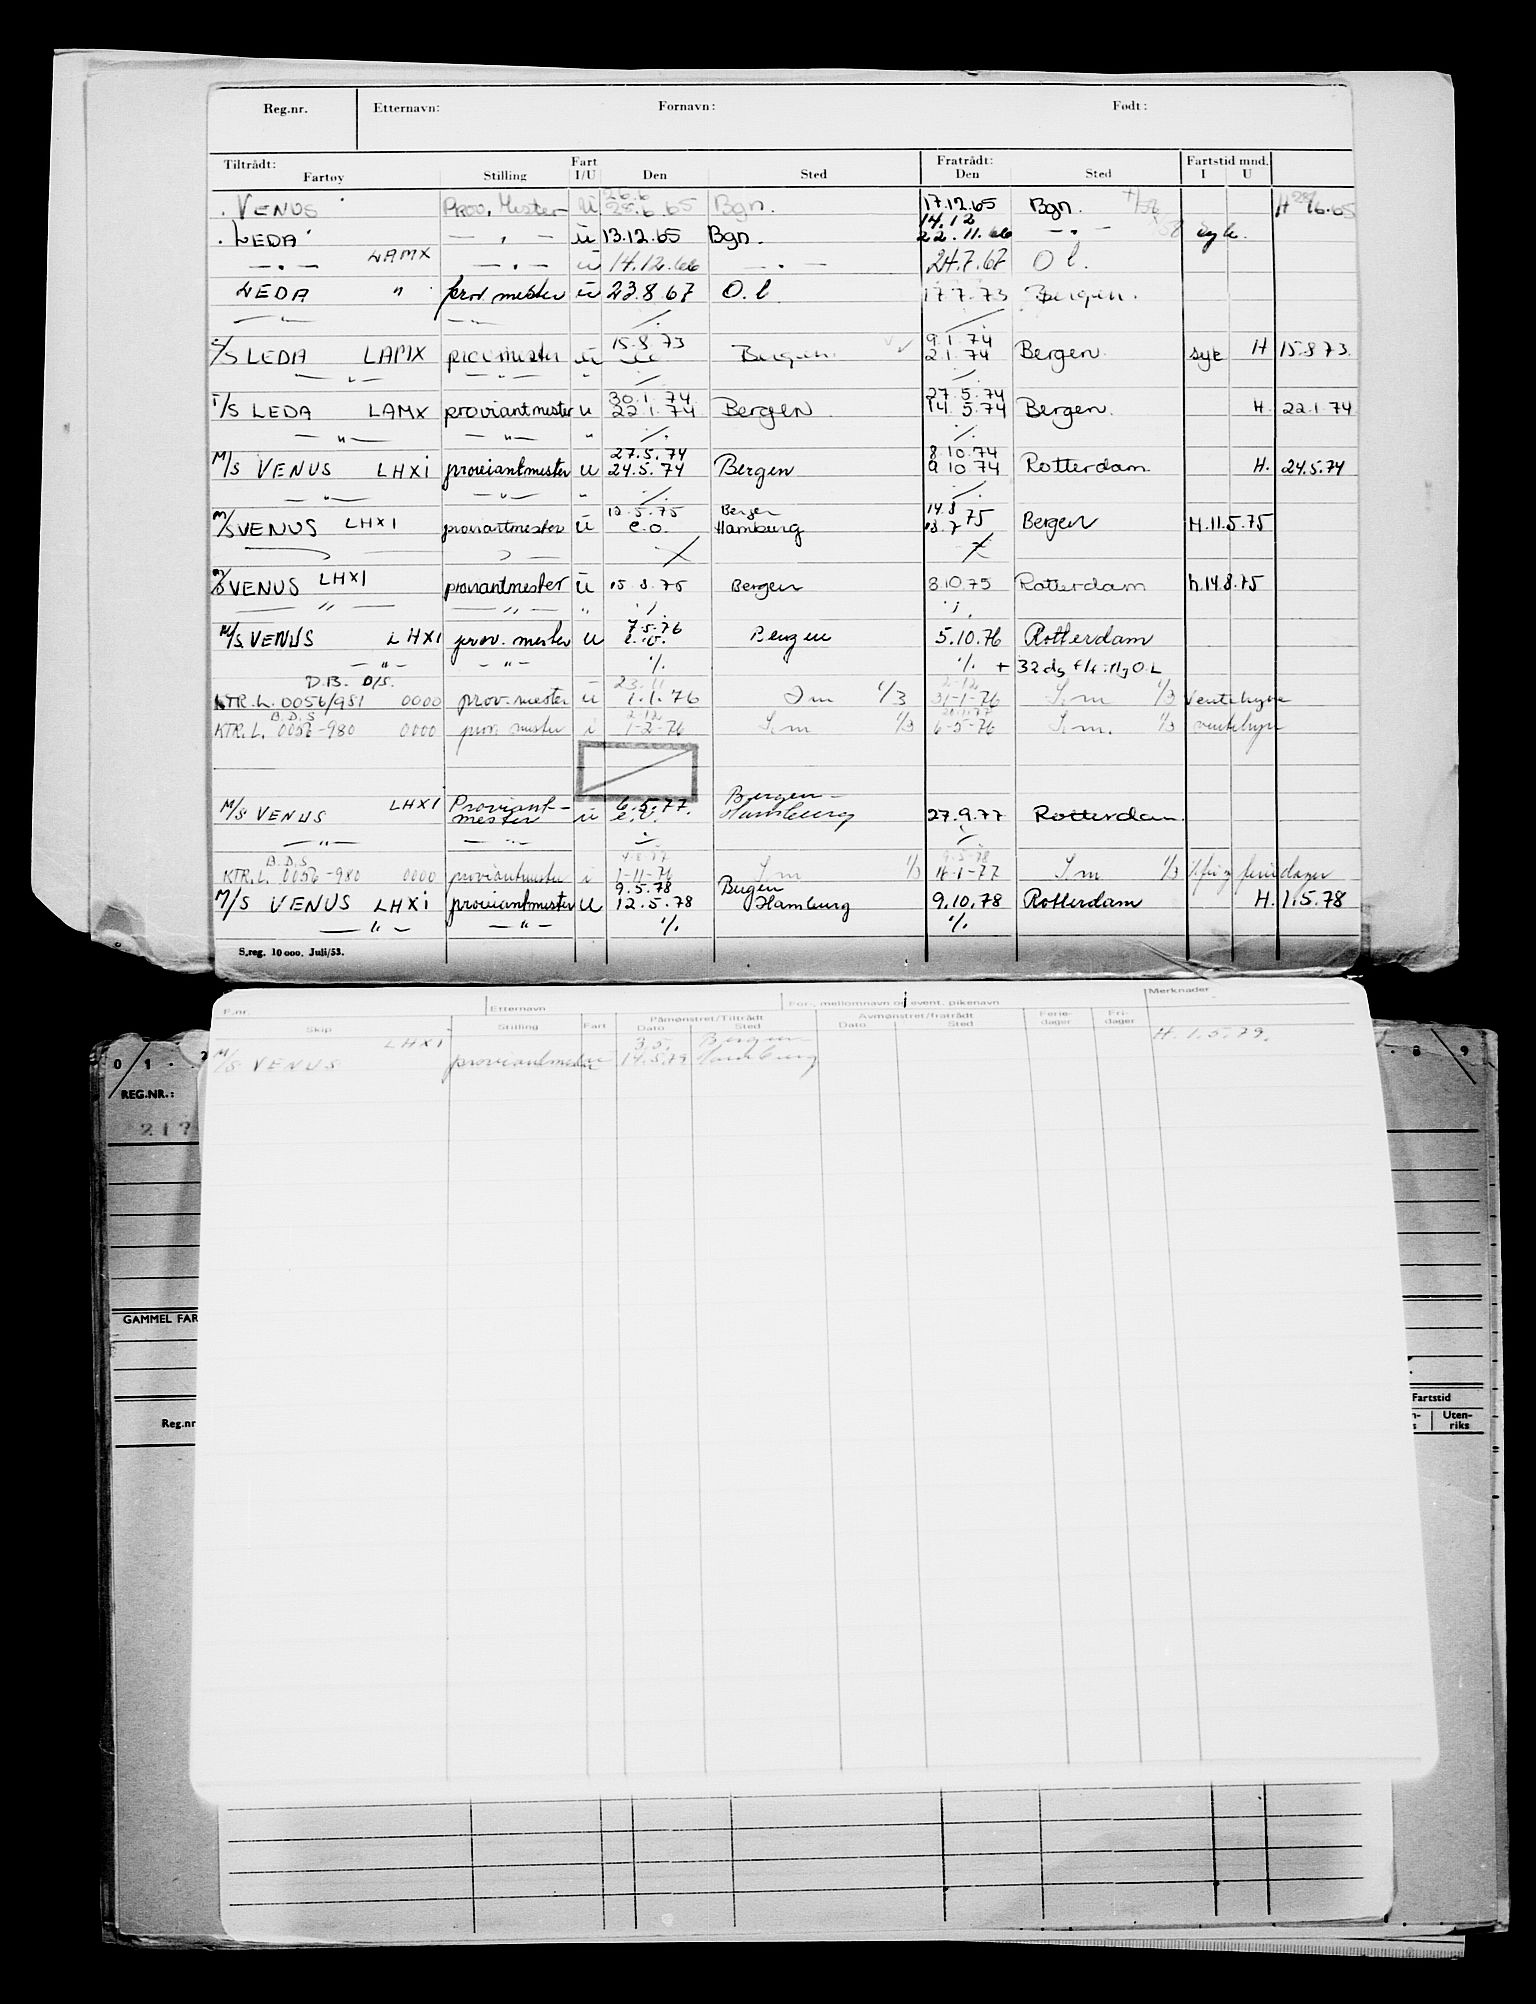 Reg.nr. Etternavn: Fornavn: Født:
Tiltrådt: Fart Fratrådt: Fartstid mnd.
Fartøy Stilling I/U Den Sted Den Sted I U
26.6
VENUS Prov. Mester U 28.6.65 Bgn. 17.12.65 Bgn.
14.12
LEDA — " — U 13.12.65 Bgn. 22.11.66 — " — syk.
— " — LAMX — " — U 14.12.66 — " — 24.7.67 O l.
LEDA " prov. mester U 23.8.67 O. l 17.7.73 Bergen.
— " — — " — ./. ./.
15.8.73 9.1.74
LEDA LAMX prov mester U Bergen 2.1.74 Bergen syk H 15.8.73
— " — — " — " ./. ./.
30.1.74 27.5.74
T/S LEDA LAMX proviantmester U 22.1.74 Bergen 14.5.74 Bergen. H. 22.1.74
— " — — " — " ./. ./.
27.5.74 8.10.74
M/S VENUS LHXI proviantmester U 24.5.74 Bergen 9.10.74 Rotterdam H. 24.5.74
— " — — " — " ./. ./.
Bergen 14.8
M/S VENUS LHXI proviantmester U e.o. Hamburg 75 Bergen H.11.5.75
M/S VENUS LHXI proviantmester U 15.8.75 Bergen 8.10.75 Rotterdam h.14.8.75
— " — — " — " ./. ./.
7.5.76
M/S VENUS LHXI prov. mester U e.o. Bergen 5.10.76 Rotterdam
— " — — " — ./. ./. + 32 dg
D.B. D/S. 23.11 2-12
KTR.L. 0056/981 0000 prov. mester U 1.1.76 1/3 31-1-76 1/3 ventehyre
B.D.S 2-12
KTR.L. 0056-980 0000 prov mester i 1-2-76 1/3 6-5-76 1/3 ventehyre
Bergen-
M/S VENUS LHXI Proviant- 6.5.77.
mester U e.o. Hamburg 27.9.77 Rotterdam
— " — — " — ./. ./.
B.D.S 9.5.78
KTR.L. 0056-980 0000 proviantmester i 1-11-76 1/3 1/3 feriedager
9.5.78 Bergen
M/S VENUS LHXI proviantmester U 12.5.78 Hamburg 9.10.78 Rotterdam H. 1.5.78
— " — — " — ./. ./.
S.reg. 10 000. Juli/53.
F.nr. Etternavn For-, mellomnavn og event. pikenavn Merknader
Skip Stilling Fart Påmønstret/Tiltrådt Avmønstret/fratrådt Ferie-dager Fri-dager
Dato Sted Dato Sted
LHXI 3.5. Bergen H. 1.5.79.
M/S VENUS proviantmester 14.5.79 Hamburg
0 1 8 9
REG.NR.:
217
GAMMEL FAR
Fartstid
Reg.nr
Uten-
riks